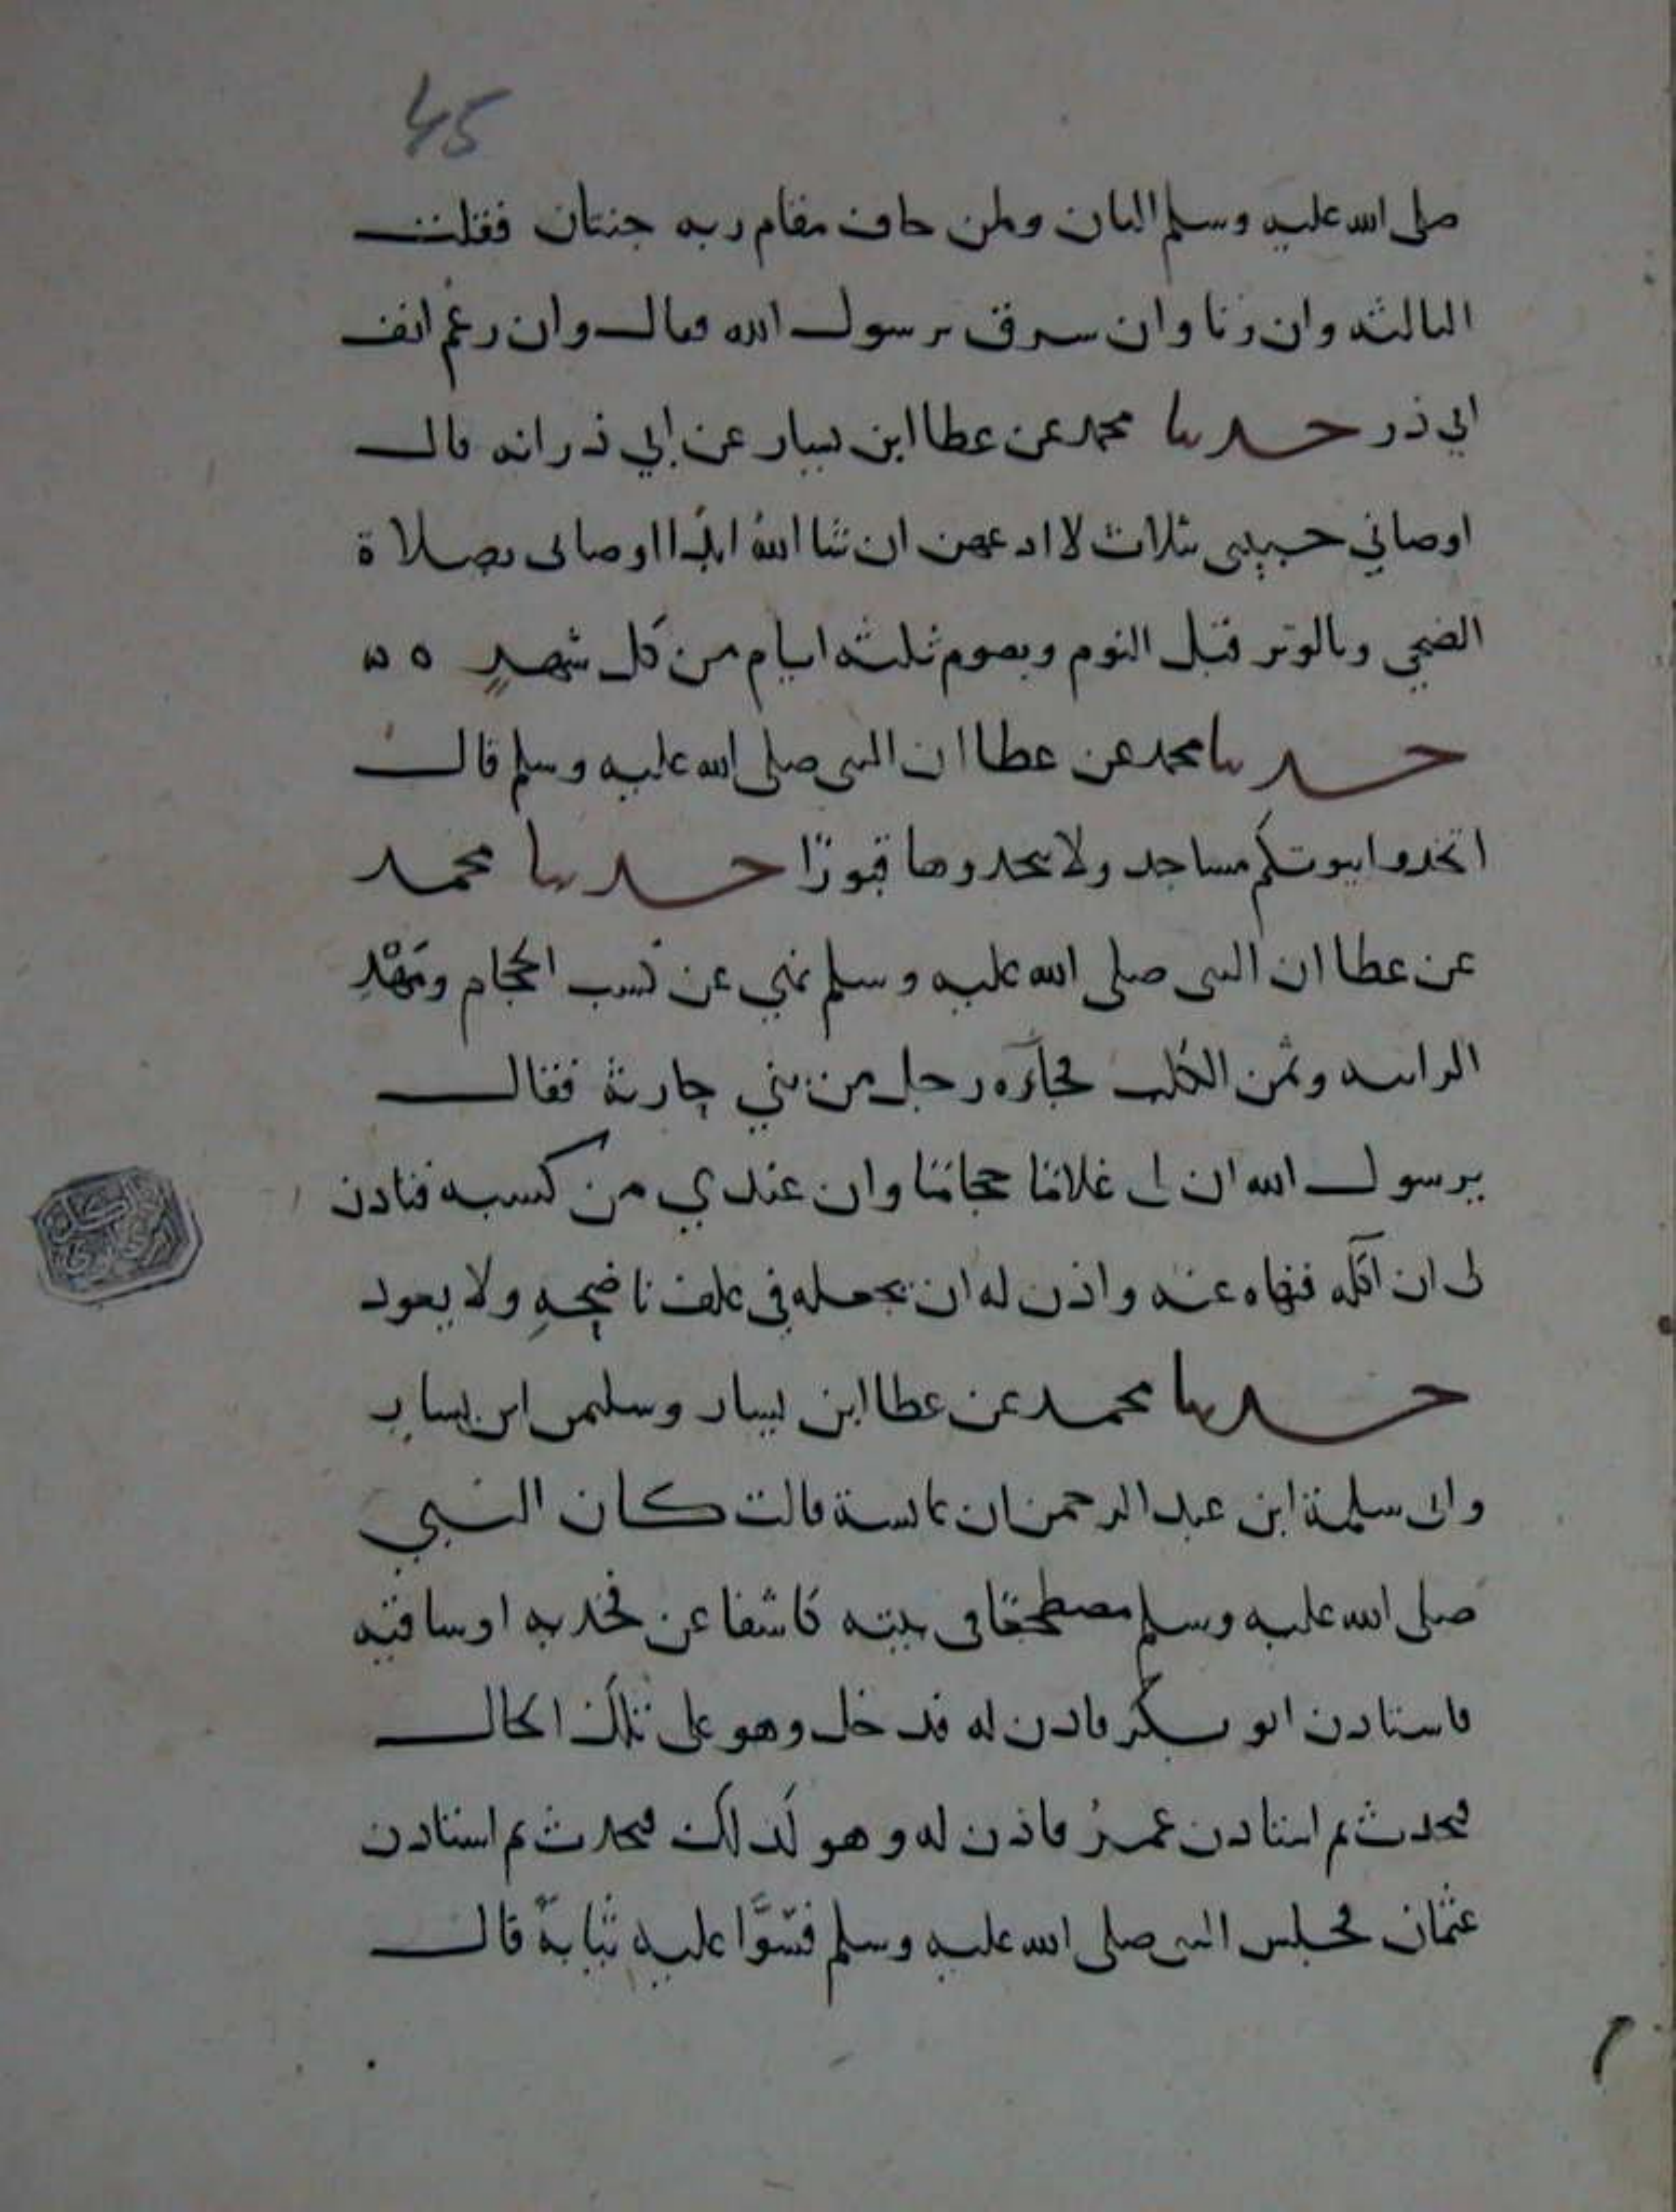 45
صلى الله عليه وسلم الثان ولمن خاف مقام ربه جنتان فقلت
الثالثه وان زنا وان سرق يرسول الله فقال وان رغم انف
ابي ذر حدثنا محمد عن عطا ابن يسار عن ابي ذر انه قال
اوصاني حبيبي بثلاث لا ادعهن ان شا الله ابدا اوصاني بصلاة
الضحي وبالوتر قبل النوم وبصوم ثلثه ايام من كل شهر
حدثنا محمد عن عطا ان النبي صلى الله عليه وسلم قال
اتخدوا بيوتكم مساجد ولا تتخدوها قبورا حدثنا محمد
عن عطا ان النبي صلى الله عليه وسلم نهي عن كسب الحجام ومهر
الزانيه وثمن الكلب فجاءه رجل من بني حارثة فقال
يرسول الله ان لي غلاما حجاما وان عندي من كسبه فتادن
لي ان اكله فنهاه عنه واذن له ان يجعله في علف ناضحه ولا يعود
حدثنا محمد عن عطا ابن يسار وسليمن ابن يسار
وابي سلمة ابن عبد الرحمن ان عايشة قالت كان النبي
صلى الله عليه وسلم مضطجعا في بيته كاشفا عن فخديه او ساقيه
فاستادن ابو بكر فادن له فدخل وهو على تلك الحال
فتحدث ثم استادن عمر فاذن له وهو كدلك فتحدث ثم استادن
عثمان فجلس النبي صلى الله عليه وسلم فسوا عليه ثيابه قال